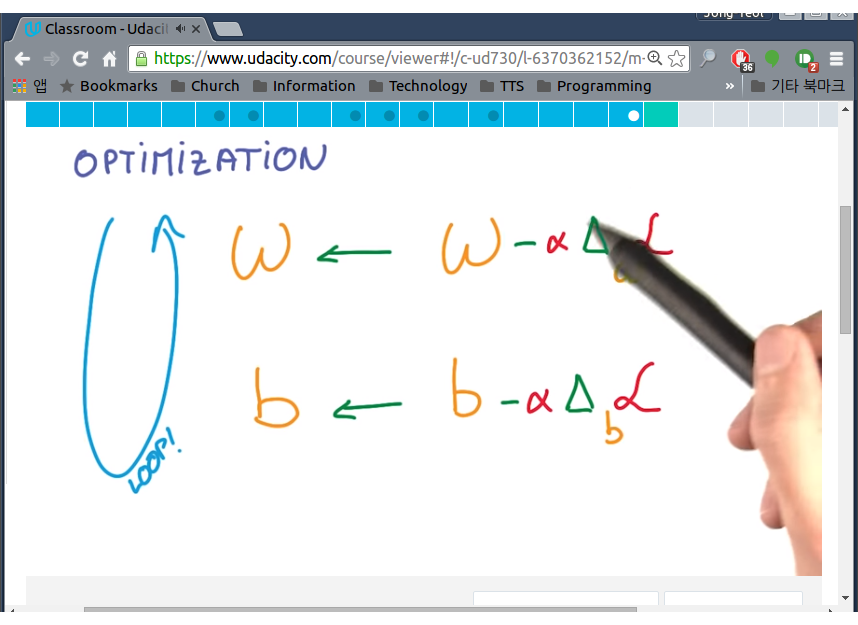 Classroom - Udaci
Jong Yeol
https://www.udacity.com/course/viewer#!/c-ud730/l-6370362152/m-
36
2
앱 Bookmarks Church Information Technology TTS Programming » 기타 북마크
OPTIMIZATION
ω ← ω - α Δ ℒ
b ← b - α Δ_b ℒ
LOOP!